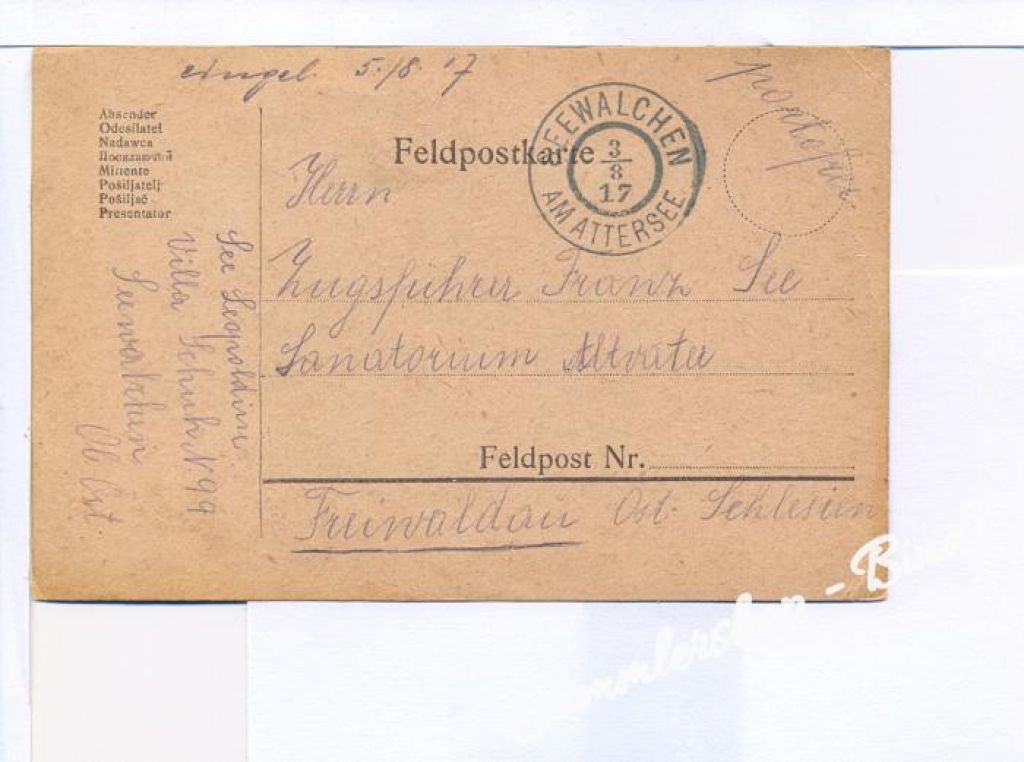 eingel. 5./8. 17
portofrei
Absender
Odesílatel
Nadawca
Mittente
Pošiljatelj
Pošiljač
Presentator
Feldpostkarte
SEEWALCHEN
3/8
17
AM ATTERSEE
Herrn
Zugsführer Franz See
Sanatorium Altvater
Feldpost Nr.
Freiwaldau Öst. Schlesien
See Leopoldine
Villa Schuh N. 99
Seewalchen
Ob. Öst